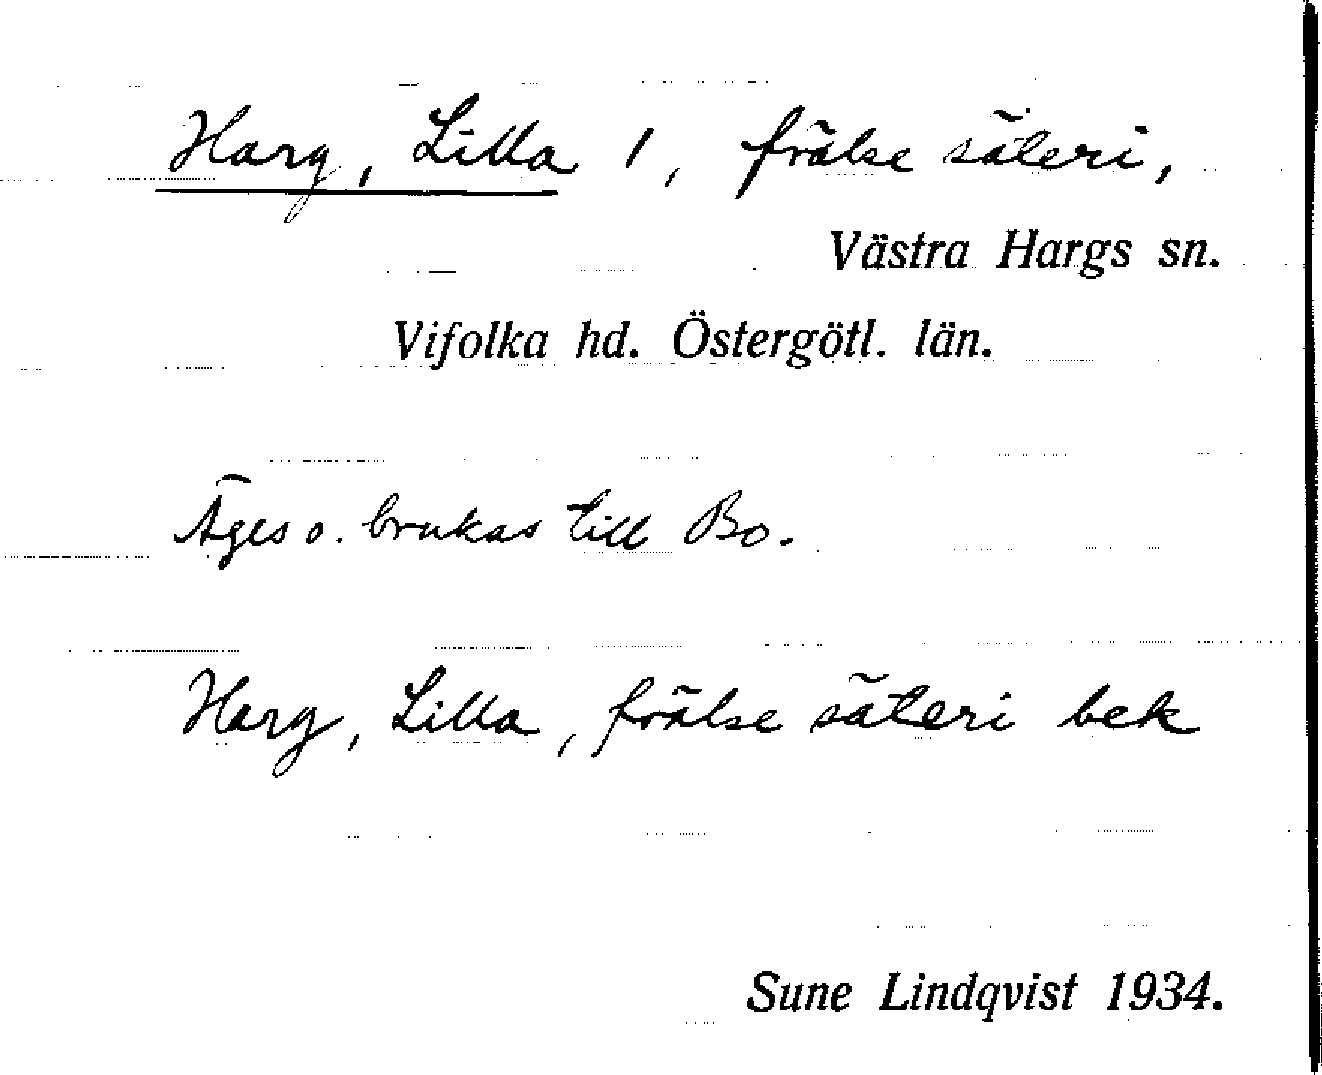 Harg, Lilla 1, frälse säteri,
Västra Hargs sn.
Vifolka hd. Östergötl. län.
Äges o. brukas till Bo.
Harg, Lilla, frälse säteri bek
Sune Lindqvist 1934.